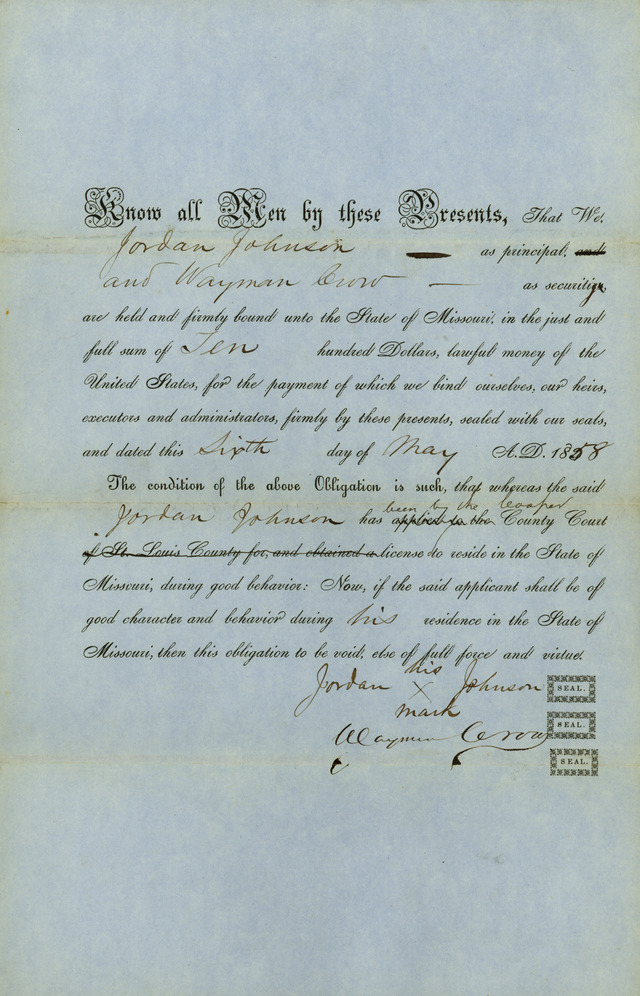 Know all Men by these Presents, That We,
Jordan Johnson — as principal, and
and Wayman Crow — as security,
are held and firmly bound unto the State of Missouri, in the just and
full sum of Ten hundred Dollars, lawful money of the
United States, for the payment of which we bind ourselves, our heirs,
executors and administrators, firmly by these presents, sealed with our seals,
and dated this Sixth day of May A.D. 1858
The condition of the above Obligation is such, that whereas the said
been by the Cooper
Jordan Johnson has applied to the County Court
of St. Louis County for, and obtained a license to reside in the State of
Missouri, during good behavior: Now, if the said applicant shall be of
good character and behavior during his residence in the State of
Missouri, then this obligation to be void, else of full force and virtue.
his
Jordan X Johnson SEAL.
mark
Wayman Crow SEAL.
SEAL.